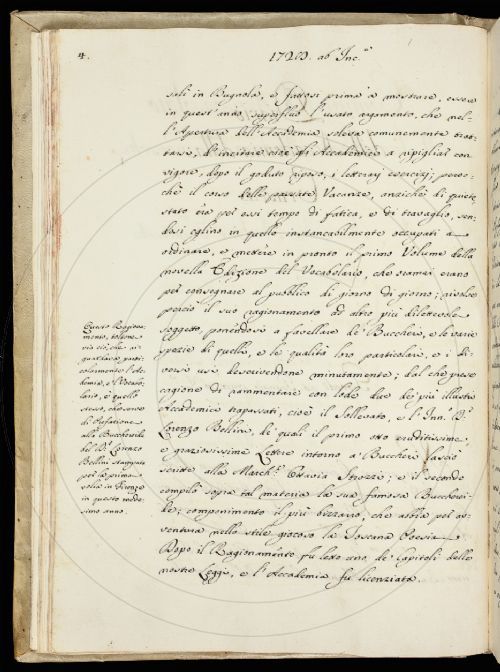 4.
1729. ab Inc.e
soli in Bugnola, e fattosi prima a mostrare, essere
in quest'anno superfluo l'usato argomento, che nel-
l'Apertura dell'Accademia soleva comunemente trat-
tarsi, d'incitare cioè gli Accademici a ripigliar con
vigore, dopo il goduto riposo, i letterarj esercizj; peroc-
chè il corso delle passate Vacanze, anzichè di quiete
stato era per essi tempo di fatica, e di travaglio, sen-
dosi eglino in quello instancabilmente occupati a
ordinare, e mettere in pronto il primo Volume della
novella Edizione del Vocabolario, che stavasi
per consegnare al pubblico di giorno di giorno; rivolse
perciò il suo ragionamento ad altro più dilettevole
soggetto, ponendosi a favellare de' Buccheri, e le varie
spezie di quelli, e le qualità loro particolari, e i di-
versi usi descrivendone minutamente; dal che prese
cagione di rammentare con lode due de' più illustri
Accademici trapassati, cioè il Sollevato, e l'Inn. Dr.
Lorenzo Bellini, de' quali il primo otto eruditissime,
e graziosissime Lettere intorno a' Buccheri lasciò
scritte alla March.a Ottavia Strozzi; e il secondo
compilò sopra tal materia la sua famosa Buccherei-
de; componimento il più bizzarro, che abbia per av-
ventura nello stile giocoso la Toscana Poesia.
Dopo il Ragionamento fu letto uno de' Capitoli delle
nostre Leggi, e l'Accademia fu licenziata.
Questo Ragiona-
mento, toltone
via ciò, che ri-
guardava parti-
colarmente l'Ac-
demia, e 'l Vocabo-
lario, è quello
stesso, che serve
di Prefazione
alla Bucchereide
del Dr. Lorenzo
Bellini stampata
per la prima
volta in Firenze
in questo mede-
simo anno.